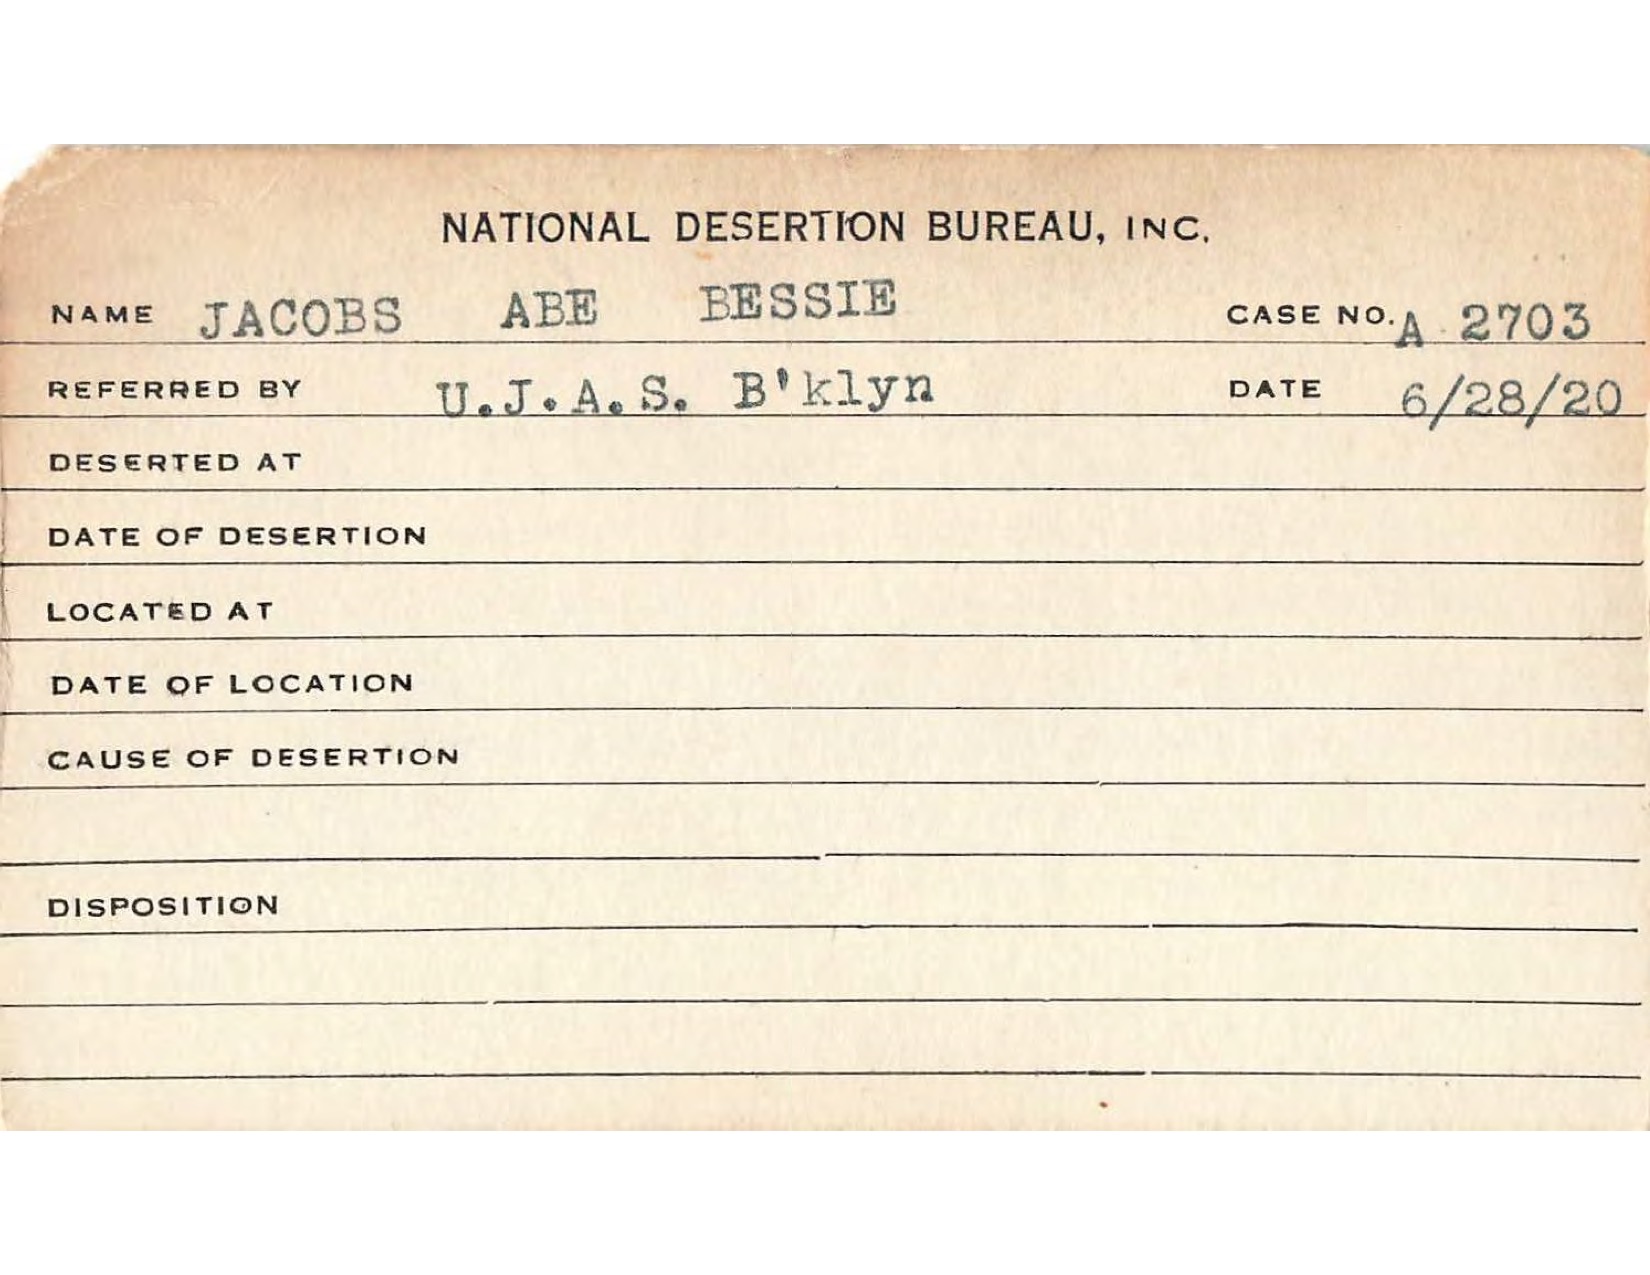 NATIONAL DESERTION BUREAU, INC.
NAME JACOBS ABE BESSIE CASE NO. A 2703
REFERRED BY U.J.A.S. B'klyn DATE 6/28/20
DESERTED AT
DATE OF DESERTION
LOCATED AT
DATE OF LOCATION
CAUSE OF DESERTION
DISPOSITION